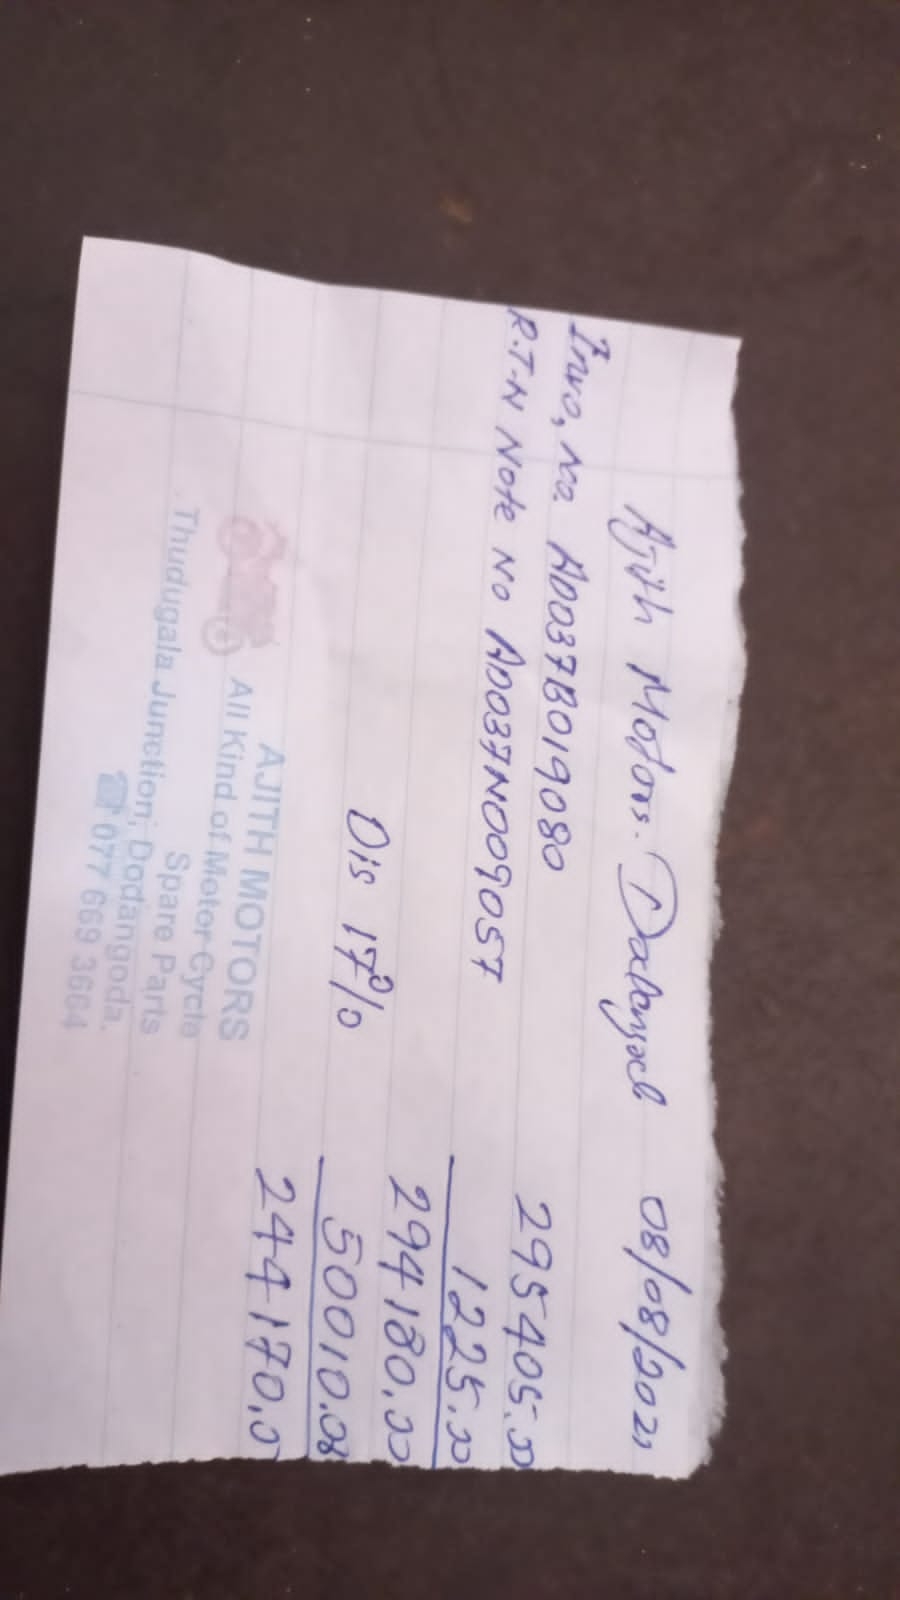 Ajith Motors. 08/08/2021
Invo, No A0037B019080 295405.00
R.T.N Note No A0037N009057 1225.00
294180.00
Dis 17% 50010.08
244170.0
AJITH MOTORS
All Kind of Motor Cycle
Spare Parts
Thudugala Junction, Dodangoda.
☎ 077 669 3664